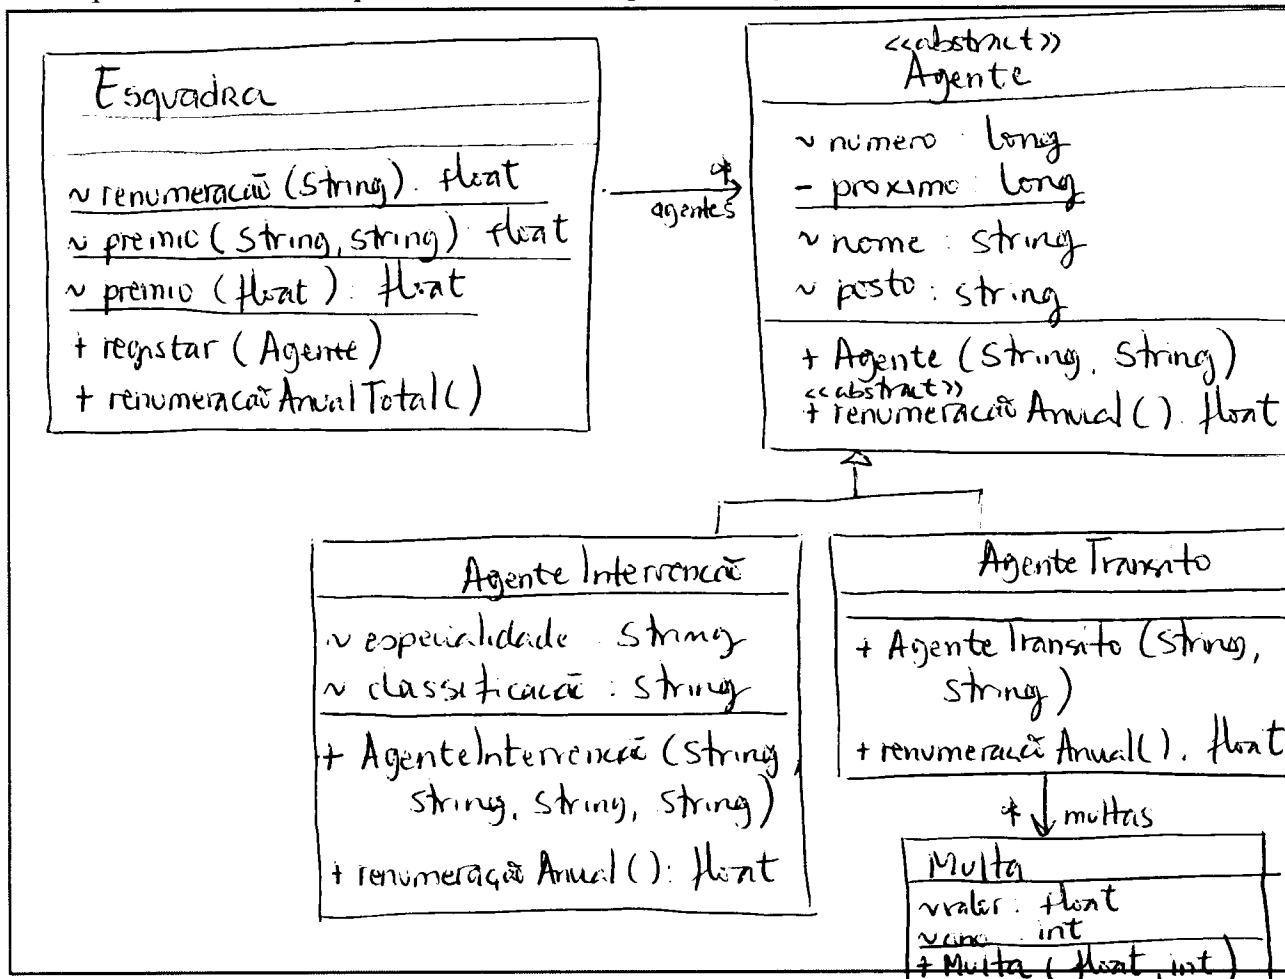 Esquadra
~ renumeração (String). float
~ premio (String, string) float
~ premio (float): float
+ registar (Agente)
+ renumeracão Anual Total ()
*
agentes
<<abstract>>
Agente
~ número : long
- proximo: long
~ nome : string
~ posto : string
+ Agente (String, String)
<<abstract>>
+ renumeração Anual (). float
Agente Intervencão
~ especialidade : String
~ classificacão : string
+ AgenteIntervencão (String,
string, string, string)
+ renumeração Anual (): float
Agente Transito
+ Agente Transito (String,
string)
+ renumeração Anual (). float
* multas
Multa
~ valor : float
~ ano : int
+ Multa (float, int)